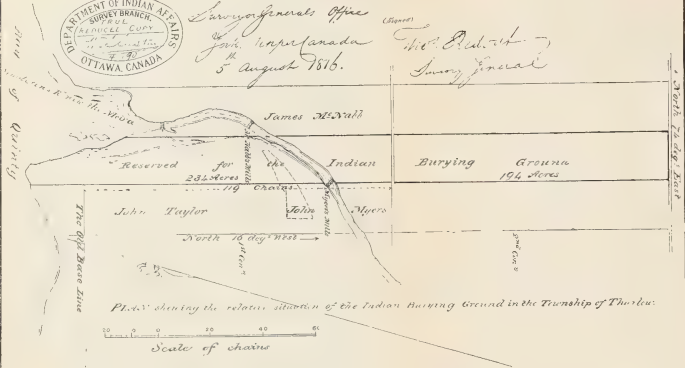 DEPARTMENT OF INDIAN AFFAIRS
SURVEY BRANCH.
TRUE
REDUCED COPY
OTTAWA, CANADA
Surveyor Generals Office
York Upper Canada
5th August 1816.
(Signed)
Surveyor General
Bay of Quinty
James McNall
Reserved for the Indian Burying Ground
234 Acres
194 Acres
119 Chains
John Taylor
John Myers
Myers Mills
North 16 deg: West
North 74 deg: East
The Old Base Line
1st Con
2nd Con
Plan shewing the relative situation of the Indian Burying Ground in the Township of Thurlow:
20 40 60
Scale of chains